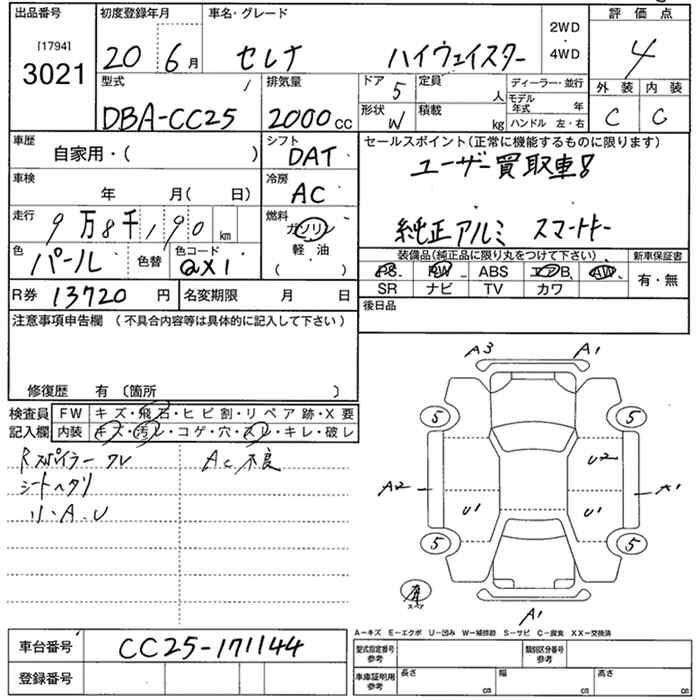 出品番号 初度登録年月 車名・グレード 2WD・4WD 評価点
[1794] 3021 20 6月 セレナ ハイウェイスター 4
型式 排気量 ドア 5 定員 人 ディーラー・並行 外装 内装
DBA-CC25 2000cc 形状 W 積載 kg モデル年式 年 C C
ハンドル 左・右
車歴 シフト セールスポイント(正常に機能するものに限ります)
自家用・( ) DAT ユーザー買取車
車検 冷房
年 月( 日) AC 純正アルミ スマートキー
走行 燃料
9万8千190km ガソリン
軽・油
( )
色 色替 色コード 装備品(純正品に限り丸をつけて下さい) 新車保証書
パール QX1 PS PW ABS エアB AW 有・無
SR ナビ TV カワ
R券 13720円 名変期限 月 日 後日品
注意事項申告欄 (不具合内容等は具体的に記入して下さい)
修復歴 有 〔箇所 〕
検査員 FW キズ・飛石・ヒビ割・リペア跡・X要
記入欄 内装 キズ・汚レ・コゲ・穴・スレ・キレ・破レ
Rスポイラーワレ AC不良
シートヘタリ
小A.U
A3 A1
5 5
U2
A2 A1
U1 U1
5 5
スペア
A1
A－キズ E－エクボ U－凹み W－補修跡 S－サビ C－腐食 XX－交換済
車台番号 CC25-171144
型式指定番号 参考 類別区分番号 参考
登録番号
車庫証明用 参考 長さ cm 幅 cm 高さ cm